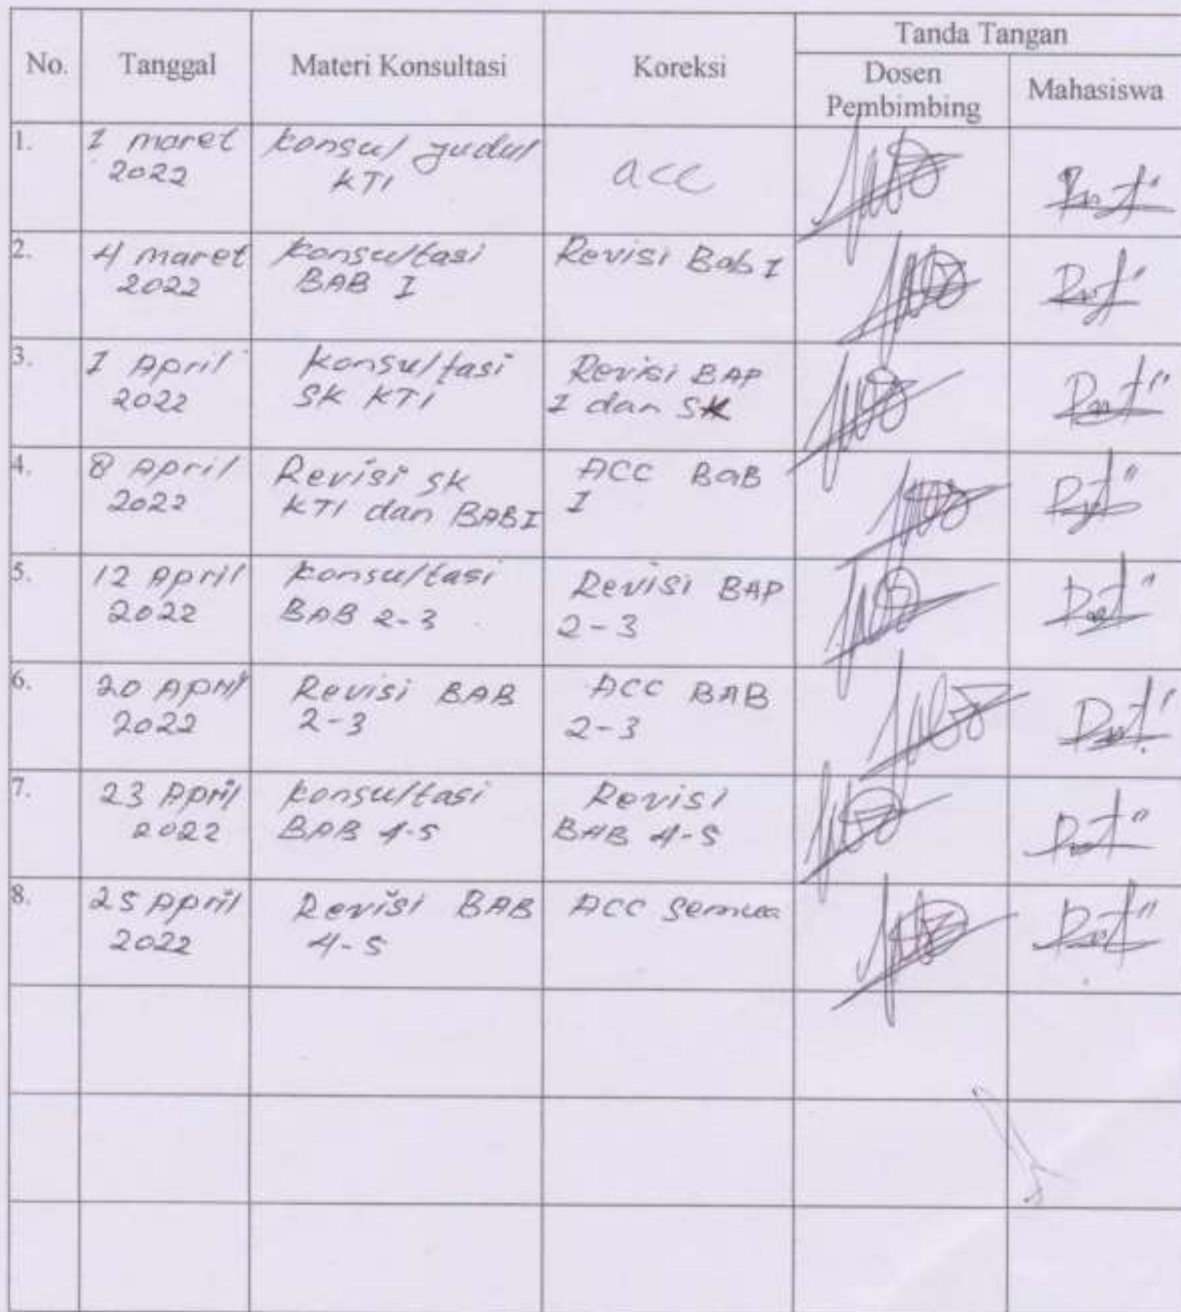 No.
Tanggal
Materi Konsultasi
Koreksi
Tanda Tangan
Dosen
Pembimbing
Mahasiswa
1.
1 maret
2022
konsul judul
KTI
acc
2.
4 maret
2022
konsultasi
BAB I
Revisi Bab I
3.
1 April
2022
konsultasi
SK KTI
Revisi BAP
I dan SK
4.
8 April
2022
Revisi SK
KTI dan BAB I
ACC BAB
I
5.
12 April
2022
konsultasi
BAB 2-3
Revisi BAP
2-3
6.
20 April
2022
Revisi BAB
2-3
ACC BAB
2-3
7.
23 April
2022
konsultasi
BAB 4-5
Revisi
BAB 4-5
8.
25 April
2022
Revisi BAB
4-5
ACC semua